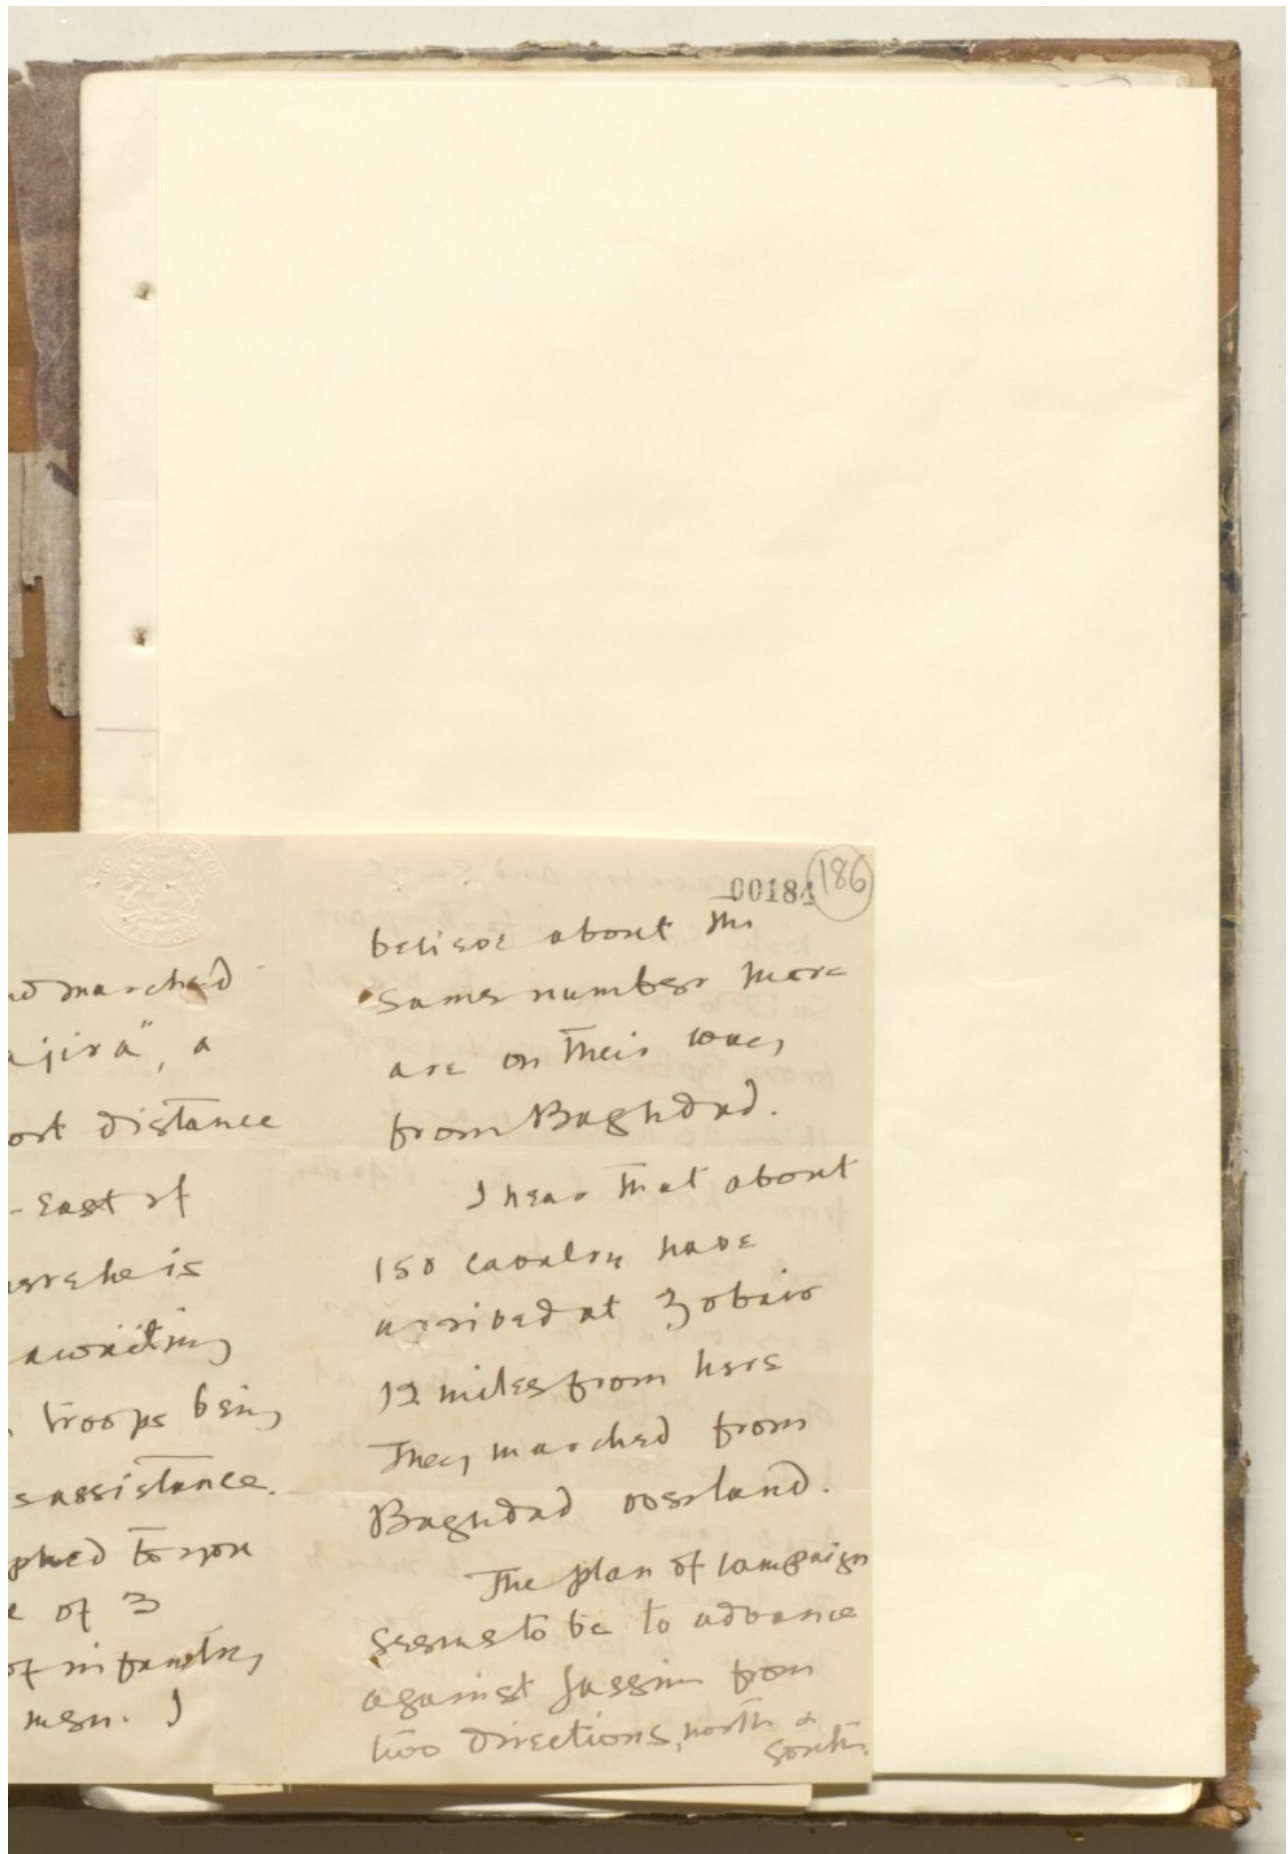 marched
jira", a
distance
- East of
he is
awaiting
troops being
assistance.
phed to you
of 3
of infantry
men. I
00184
186
believe about the
same number more
are on their way
from Baghdad.
I hear that about
150 cavalry have
arrived at Zobair
12 miles from here
They marched from
Baghdad overland.
The plan of campaign
seems to be to advance
against Jassim from
two directions, north &
south.